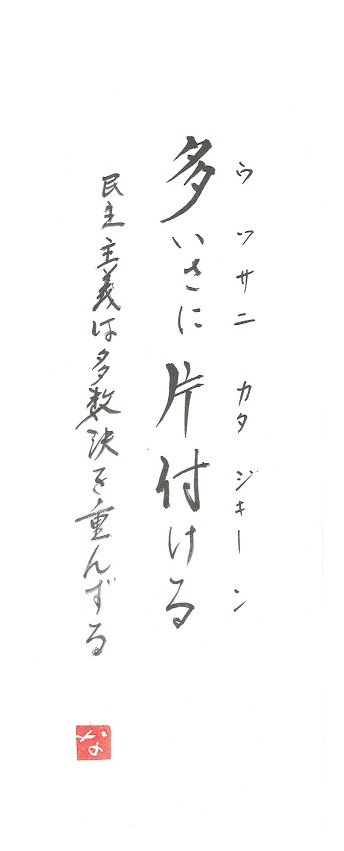 ウツサニ カタジキーン
多いさに片付ける
民主主義は多数決を重んずる